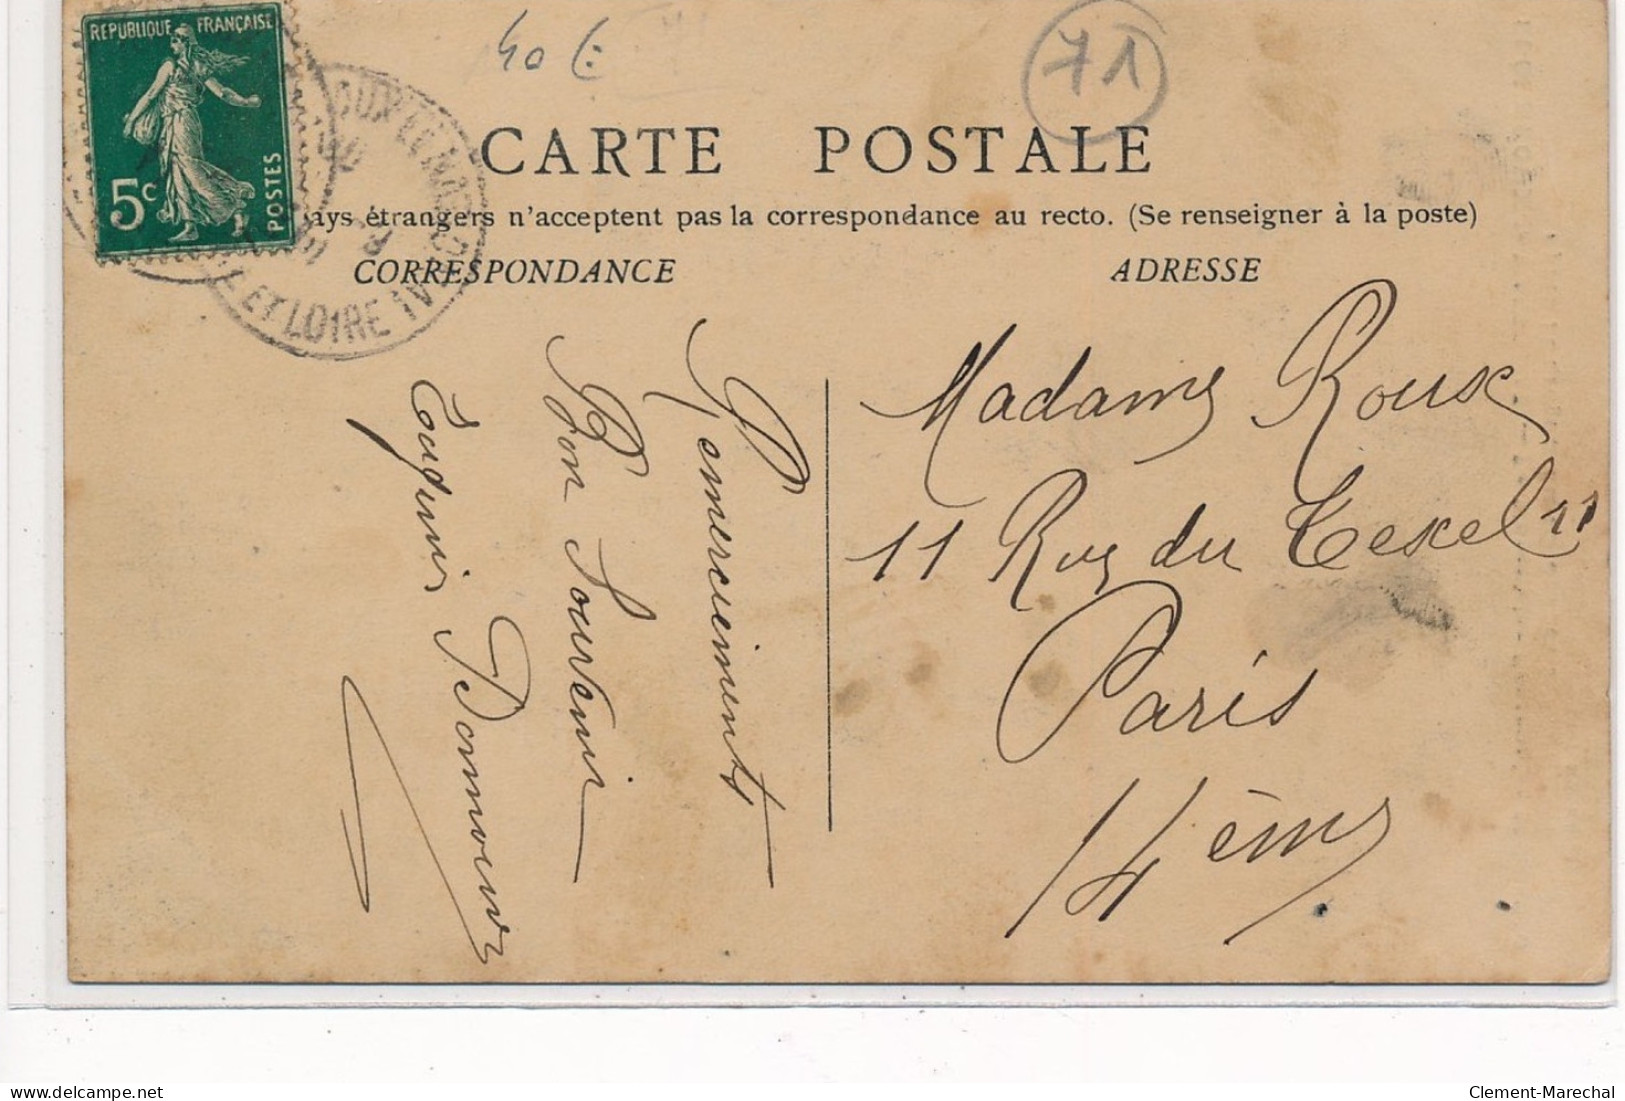 REPUBLIQUE FRANÇAISE
5c
POSTES
40 €
71
CARTE POSTALE
ays étrangers n'acceptent pas la correspondance au recto. (Se renseigner à la poste)
CORRESPONDANCE
ADRESSE
ET LOIRE
Remerciements
Bon Souvenir
Madame Roux
11 Rue du Texel 11
Paris
14ème
Clement-Marechal